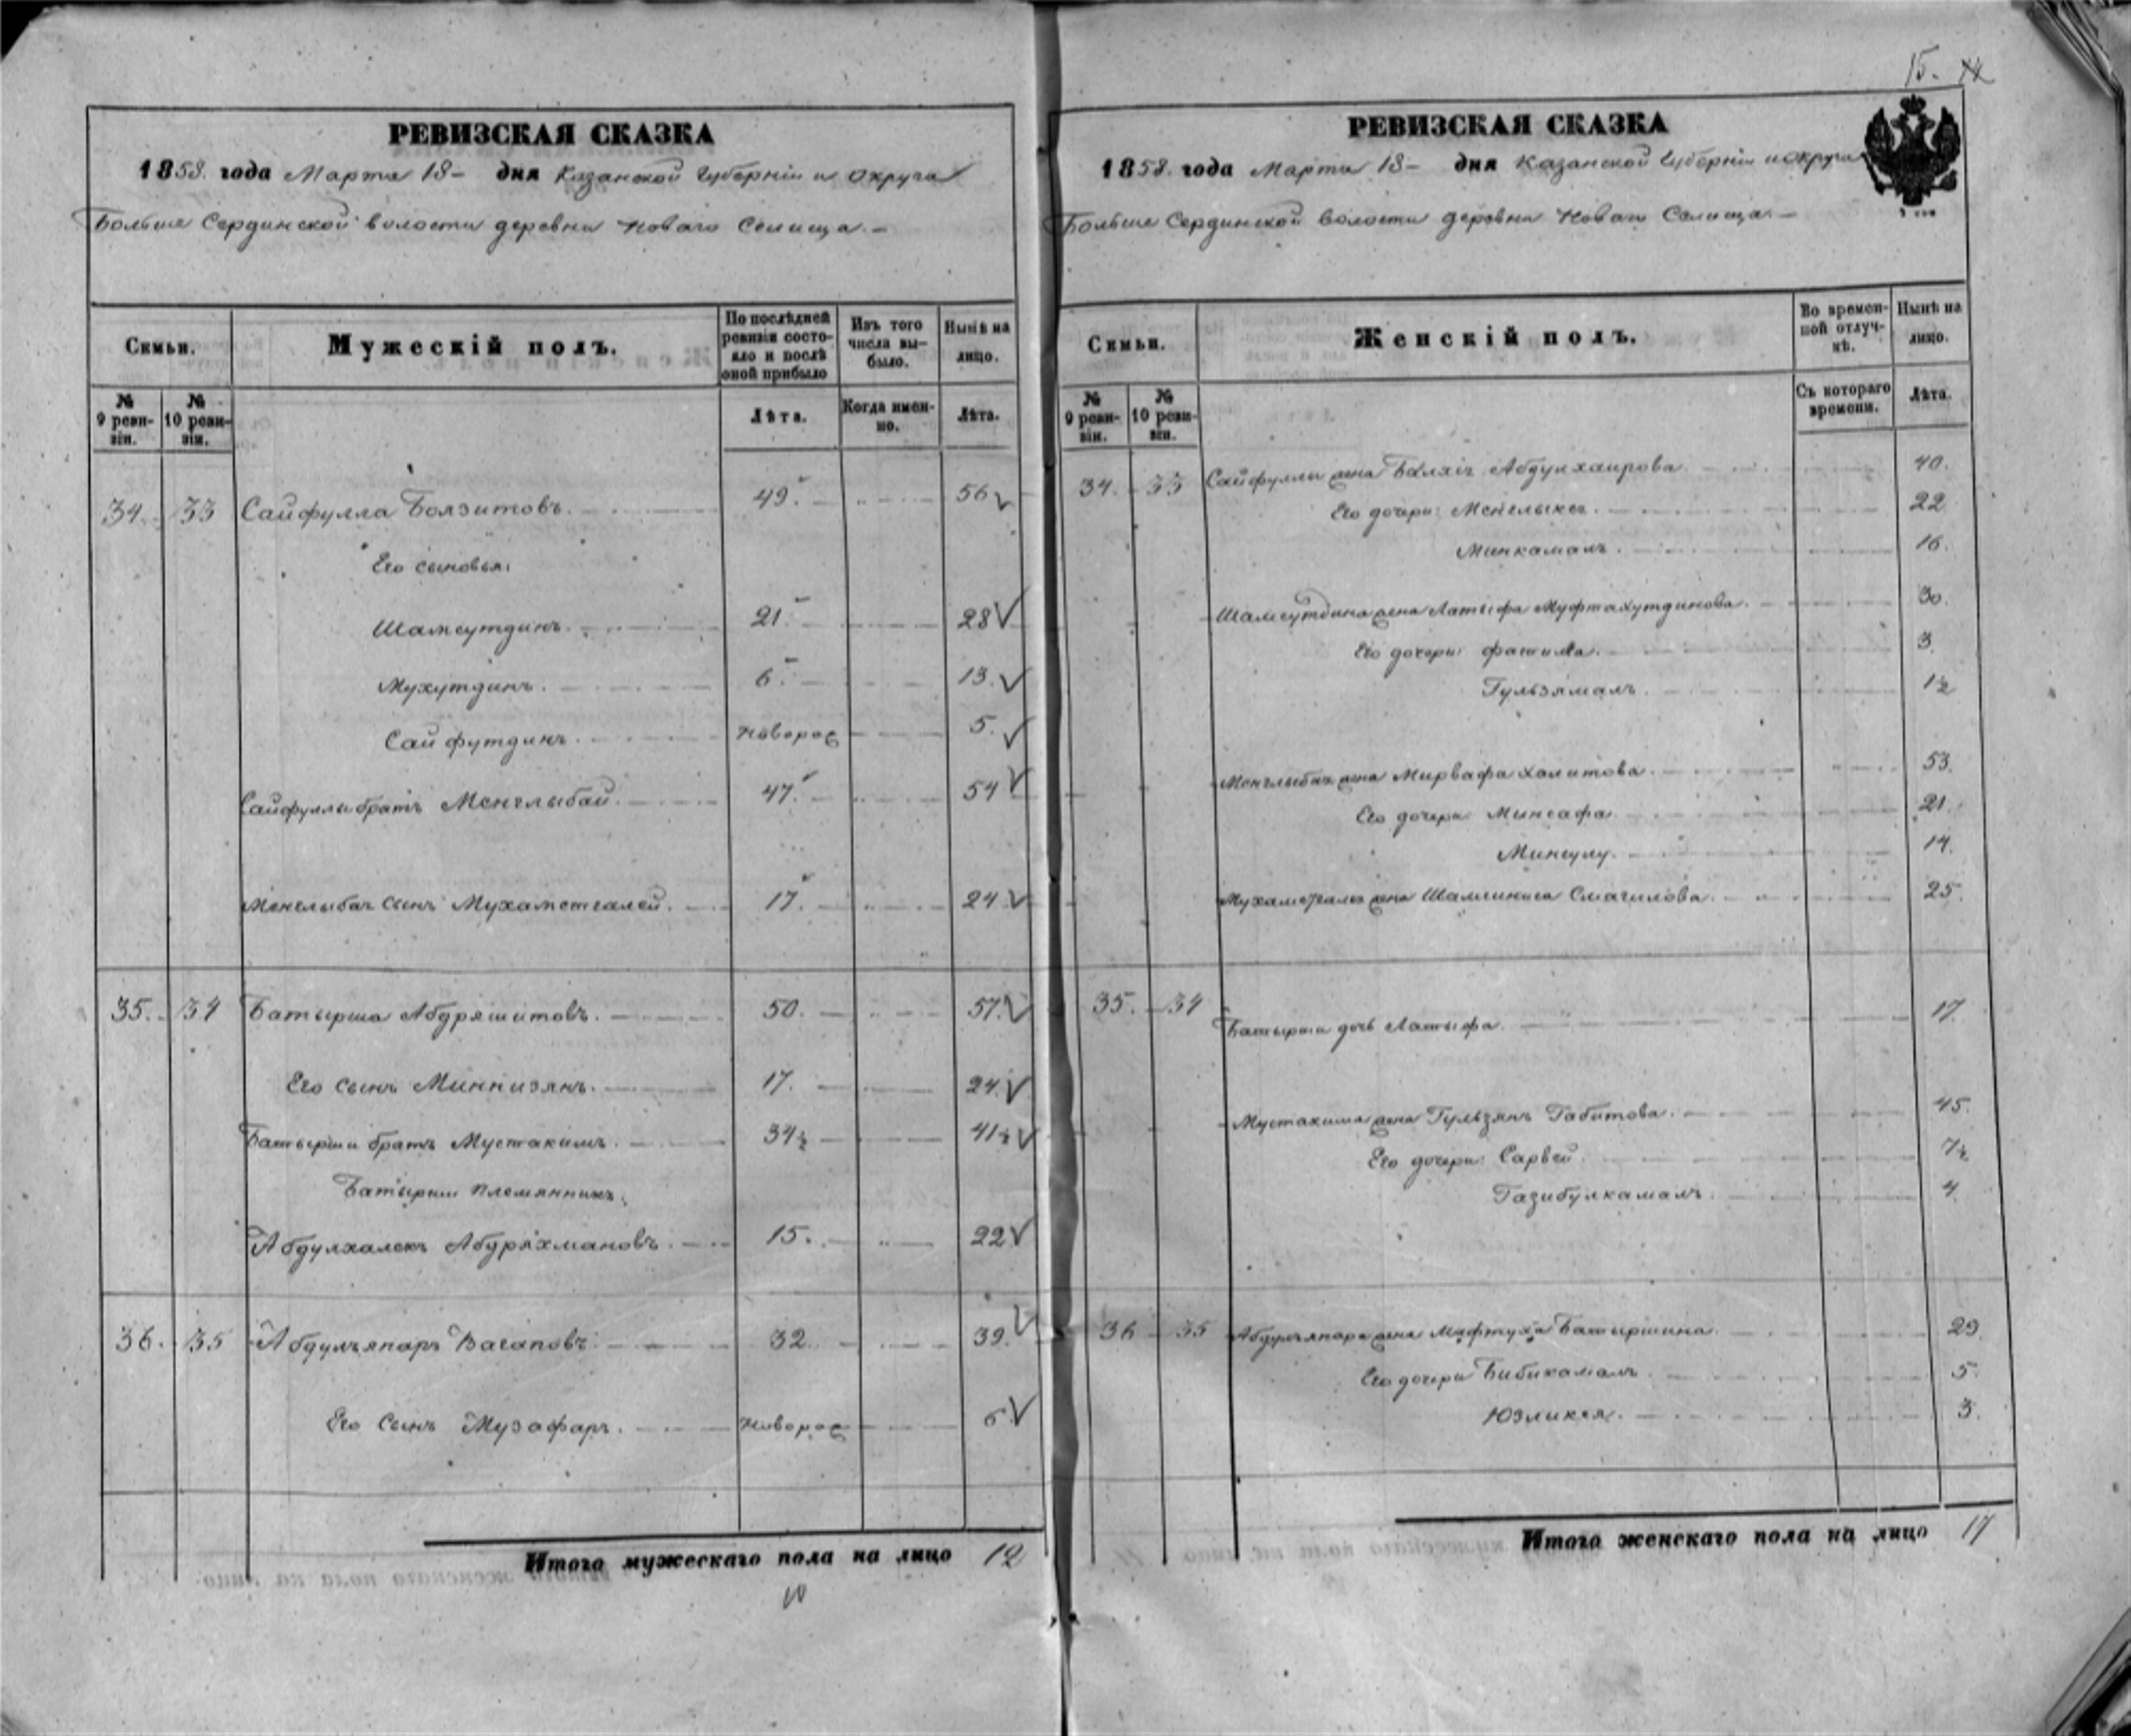 15. 14
РЕВИЗСКАЯ СКАЗКА
1858. года Марта 18 – дня Казанской Губерніи и округа
Больше Сердинской волости деревни Новаго Селища. –
Семьи. Мужескій полъ. По послѣдней ревизіи состояло и послѣ оной прибыло Изъ того числа выбыло. Нынѣ на лицо.
№ 9 ревизіи. № 10 ревизіи. Лѣта. Когда именно. Лѣта.
34. 33 Сайфулла Боязитовъ. 49. 56
Его сыновья:
Шамсутдинъ. 21. 28
Мухутдинъ. 6. 13.
Сайфутдинъ. новорос 5.
Сайфуллы братъ Менглыбай. 47. 54
Менглыбая сынъ Мухаметгалей. 17. 24
35. 34 Батырша Абдряшитовъ. 50. 57.
Его сынъ Миннизянъ. 17. 24.
Батырши братъ Мустакимъ. 34½ 41½
Батырши племянникъ.
Абдулхалекъ Абдряхмановъ. 15. 22
36. 35 Абдулъяпаръ Вагаповъ. 32. 39.
Его сынъ Музафаръ. новорос 6
Итого мужескаго пола на лицо 12
РЕВИЗСКАЯ СКАЗКА
1858. года Марта 18 – дня Казанской Губерніи и округа
Больше Сердинской волости деревни Новаго Селища. –
Семьи. Женскій полъ. Во временной отлучкѣ. Нынѣ на лицо.
№ 9 ревизіи. № 10 ревизіи. Съ котораго времени. Лѣта.
34. 33 Сайфуллы жена Абдулхаирова 40.
Его дочери: 22
Минкамалъ. 16.
Шамсутдина жена Латыфа Муфтахутдинова. 30.
Его дочери: Фатима. 3.
Гульзямалъ. 1½
Менглыбая жена Мирвафа Халитова. 53.
Его дочери: Минсафа. 21.
Минсулу. 14.
Мухаметгалея жена Шамсиниса Смагилова. 25.
35. 34 Батырши дочь Латыфа. 17.
Мустакима жена Гульзянъ Габитова. 45.
Его дочери: Сарвей. 7½
Газибулкамалъ. 4.
36 35 Абдулъяпара жена Мафтуха Батыршина. 29.
Его дочери Бибикамалъ 5.
Юзликея. 3.
Итого женскаго пола на лицо 17